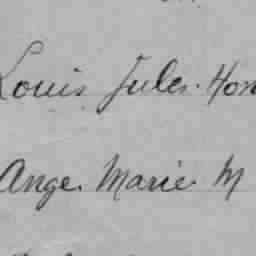 Louis Jules. Hon
Ange. Marie M